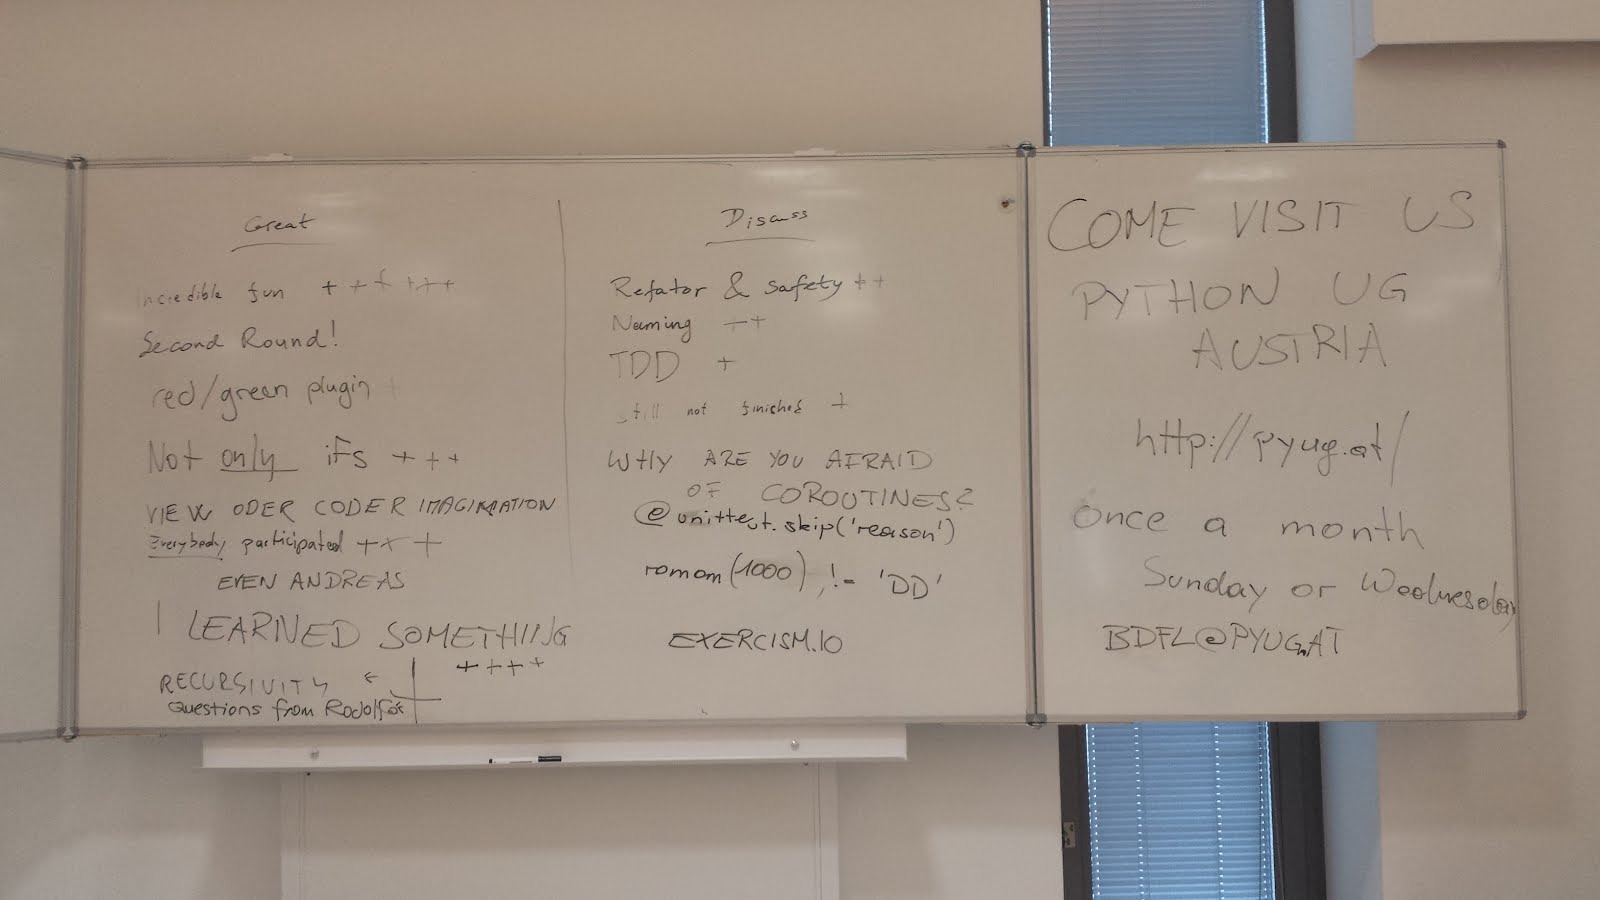 Great
Incredible fun + + + + + +
Second Round!
red/green plugin +
Not only ifs + + +
VIEW ODER CODER IMAGINATION
Everybody participated + + +
EVEN ANDREAS
I LEARNED SOMETHING
+ + + +
RECURSIVITY
Questions from Rodolfo
Discuss
Refator & safety + +
Naming + +
TDD +
still not finished +
WHY ARE YOU AFRAID
OF COROUTINES?
@unittest.skip('reason')
roman(1000) != 'DD'
EXERCISM.IO
COME VISIT US
PYTHON UG
AUSTRIA
http://pyug.at/
Once a month
Sunday or Wednesday
BDFL@PYUG.AT